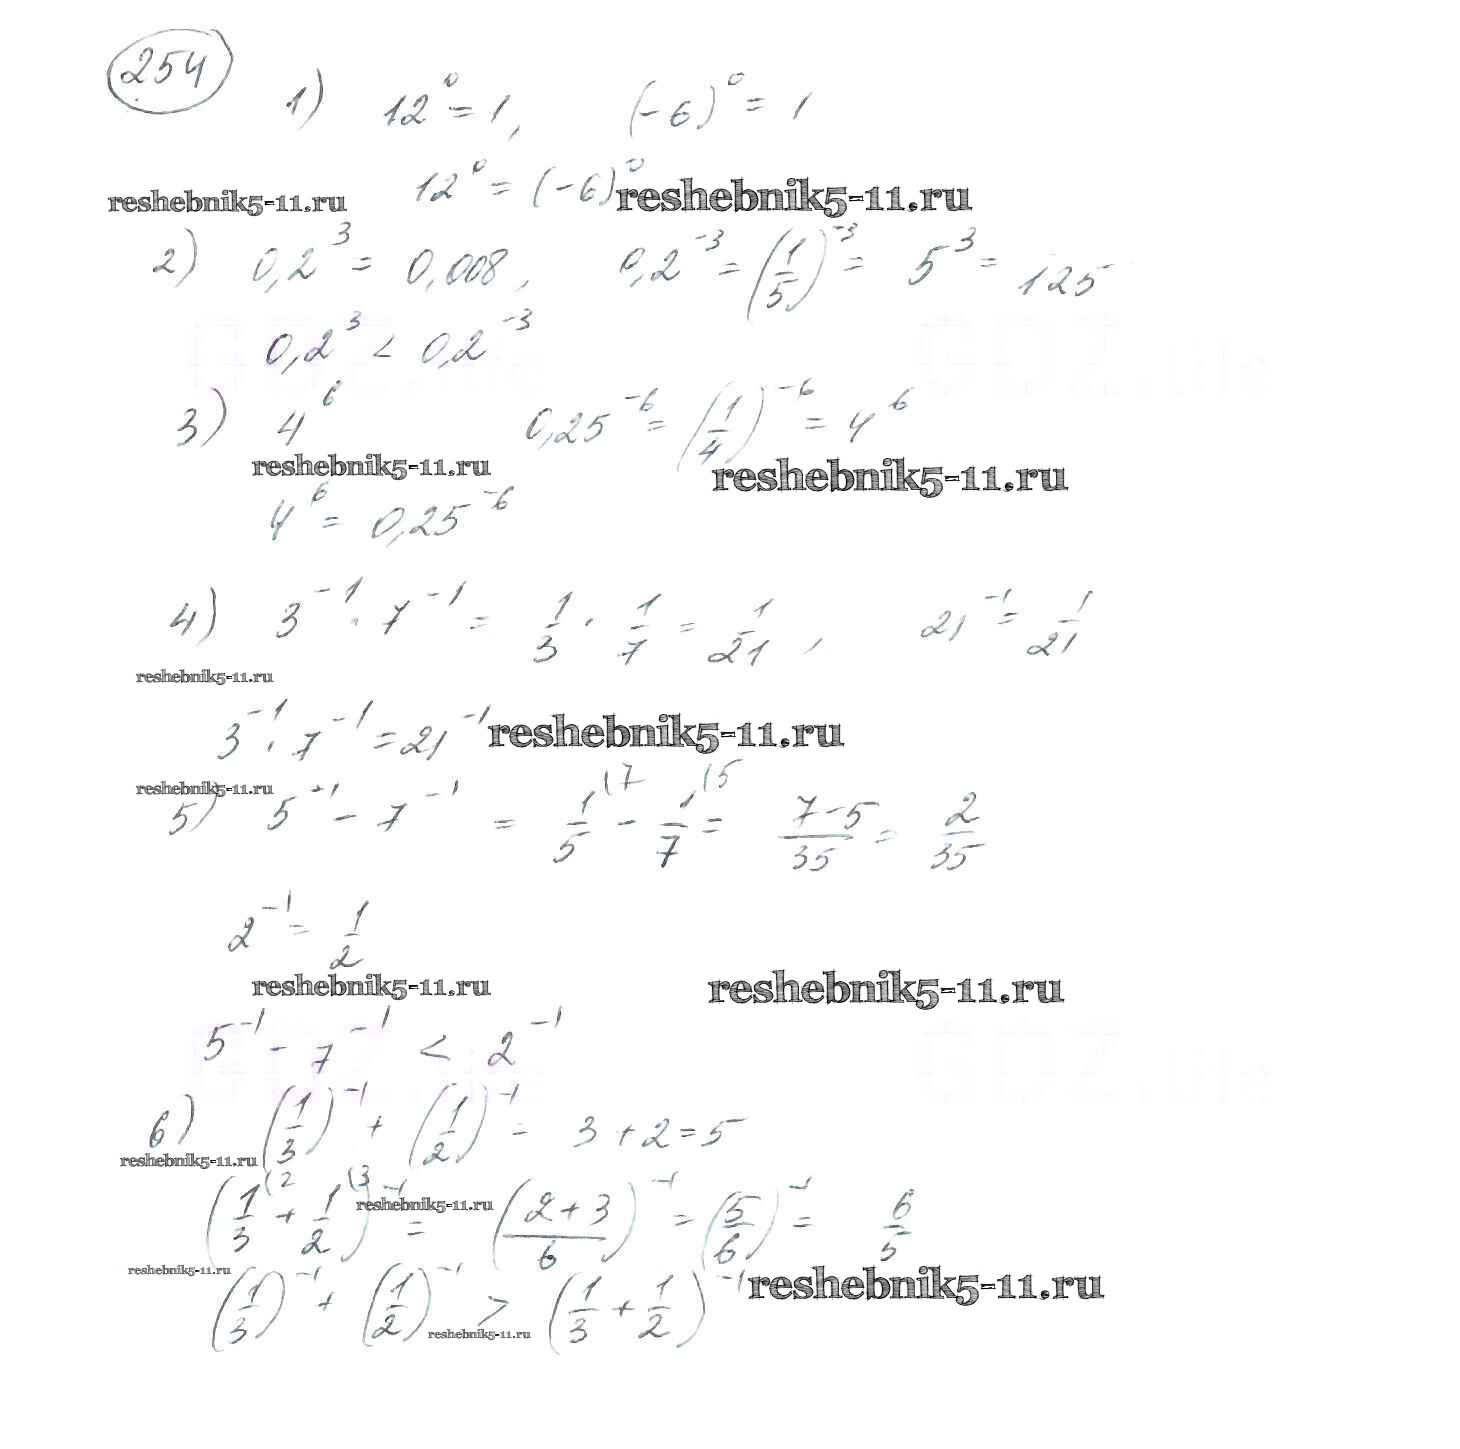 254
1) 12⁰ = 1, (-6)⁰ = 1
12⁰ = (-6)⁰
reshebnik5-11.ru reshebnik5-11.ru
2) 0,2³ = 0,008, 0,2⁻³ = (1/5)⁻³ = 5³ = 125
0,2³ < 0,2⁻³
GDZ.life GDZ.life
3) 4⁶ 0,25⁻⁶ = (1/4)⁻⁶ = 4⁶
reshebnik5-11.ru reshebnik5-11.ru
4⁶ = 0,25⁻⁶
4) 3⁻¹ · 7⁻¹ = 1/3 · 1/7 = 1/21, 21⁻¹ = 1/21
reshebnik5-11.ru
3⁻¹ · 7⁻¹ = 21⁻¹ reshebnik5-11.ru
reshebnik5-11.ru
5) 5⁻¹ - 7⁻¹ = 1/5 (7 - 1/7 (5 = 7-5/35 = 2/35
2⁻¹ = 1/2
reshebnik5-11.ru reshebnik5-11.ru
5⁻¹ - 7⁻¹ < 2⁻¹
GDZ.life GDZ.life
6) (1/3)⁻¹ + (1/2)⁻¹ = 3 + 2 = 5
reshebnik5-11.ru
(1/3 (2 + 1/2 (3)⁻¹ = (2+3/6)⁻¹ = (5/6)⁻¹ = 6/5
reshebnik5-11.ru
reshebnik5-11.ru
(1/3)⁻¹ + (1/2)⁻¹ > (1/3 + 1/2)⁻¹ reshebnik5-11.ru
reshebnik5-11.ru